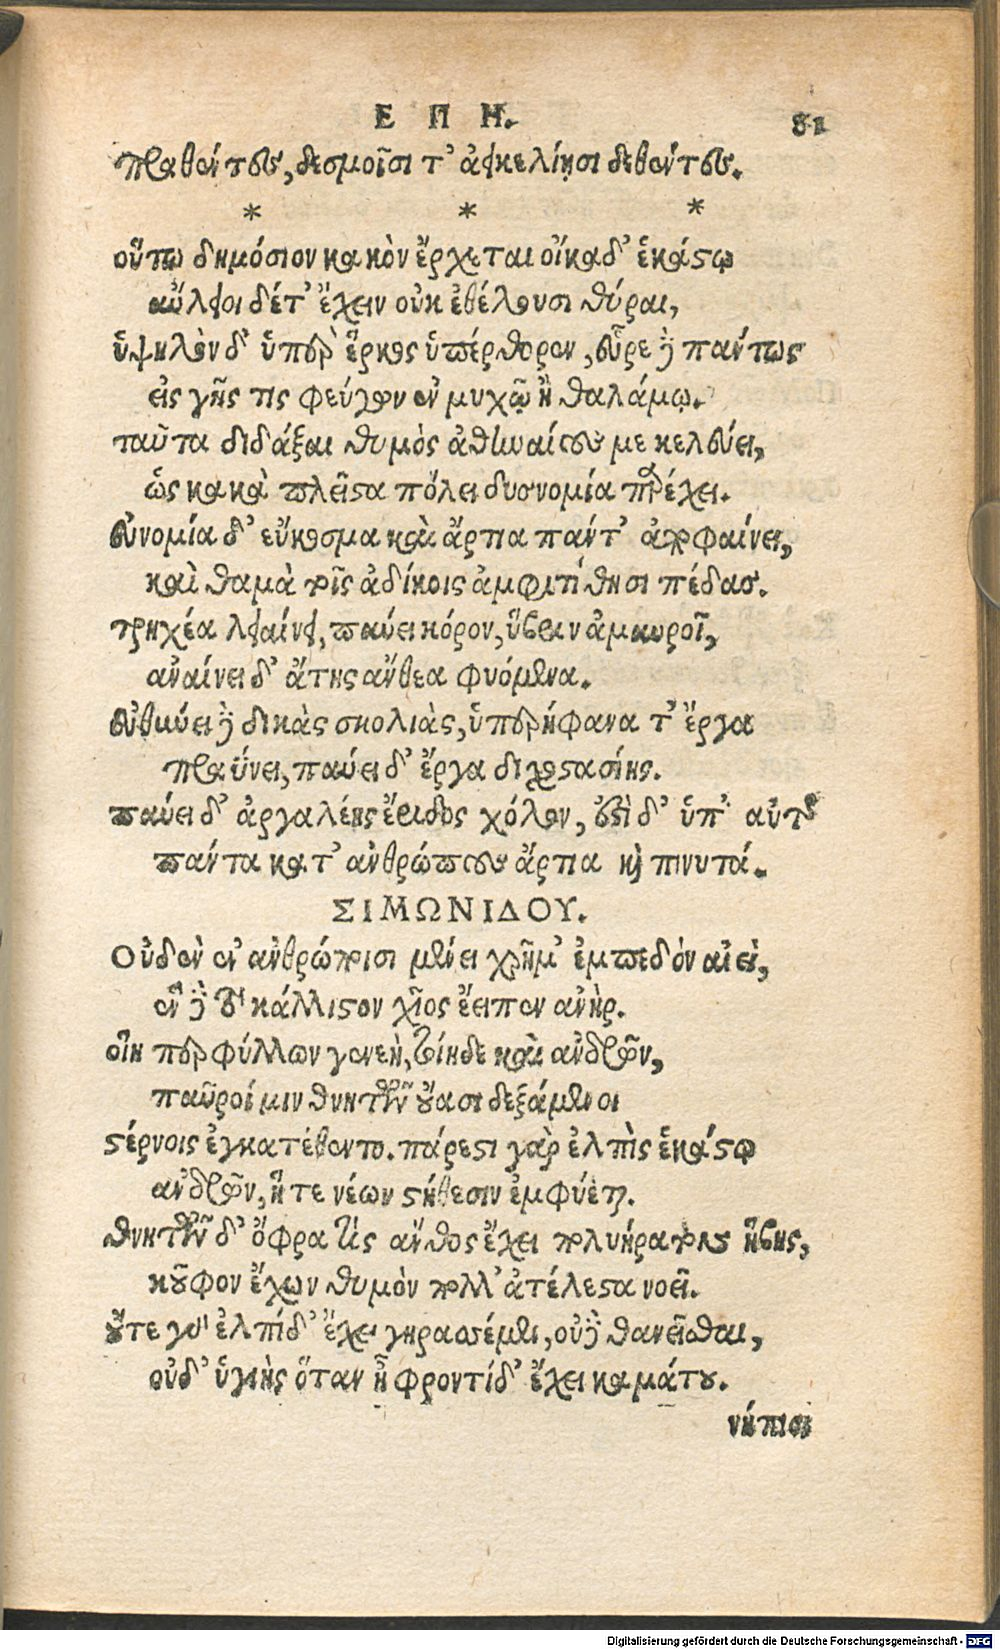 ΕΠΗ. 81
πραθέντες, δεσμοῖσι τ' ἀεικελίῃσι δεθέντες.
* * *
οὕτω δημόσιον κακὸν ἔρχεται οἴκαδ' ἑκάστῳ
αὔλειοι δέτ' ἔχειν οὐκ ἐθέλουσι θύραι,
ὑψηλὸν δ' ὑπὲρ ἕρκος ὑπέρθορεν, εὗρε δὲ πάντως
εἰς γῆς τις φεύγων ἐν μυχῷ ἢ θαλάμῳ.
ταῦτα διδάξαι θυμὸς ἀθηναίους με κελεύει,
ὡς κακὰ πλεῖστα πόλει δυσνομία παρέχει.
εὐνομία δ' εὔκοσμα καὶ ἄρτια πάντ' ἀποφαίνει,
καὶ θαμὰ τοῖς ἀδίκοις ἀμφιτίθησι πέδας.
τρηχέα λειαίνει, παύει κόρον, ὕβριν ἀμαυροῖ,
αὐαίνει δ' ἄτης ἄνθεα φυόμενα.
εὐθύνει δὲ δικὰς σκολιὰς, ὑπερήφανα τ' ἔργα
πραΰνει, παύει δ' ἔργα διχοστασίης.
παύει δ' ἀργαλέης ἔριδος χόλον, ἔστι δ' ὑπ' αὐτοῦ
πάντα κατ' ἀνθρώπους ἄρτια καὶ πινυτά.
ΣΙΜΩΝΙΔΟΥ.
Οὐδὲν ἐν ἀνθρώποισι μένει χρῆμ' ἐμπεδόν αἰεὶ,
ἓν δὲ τὸ κάλλιστον χῖος ἔειπεν ἀνὴρ.
οἵη περ φύλλων γενεὴ, τοίηδε καὶ ἀνδρῶν,
παῦροί μιν θνητῶν οὔασι δεξάμενοι
στέρνοις ἐγκατέθεντο. πάρεστι γὰρ ἐλπὶς ἑκάστῳ
ἀνδρῶν, ἥ τε νέων στήθεσιν ἐμφύεται.
θνητῶν δ' ὄφρα τὶς ἄνθος ἔχει πολυήρατον ἥβης,
κοῦφον ἔχων θυμὸν πολλ' ἀτέλεστα νοεῖ.
οὔτε γὰρ ἐλπίδ' ἔχει γηρασέμεν, οὐδὲ θανεῖσθαι,
οὐδ' ὑγιὴς ὅταν ᾖ φροντίδ' ἔχει καμάτου.
νήπιοι
Digitalisierung gefördert durch die Deutsche Forschungsgemeinschaft - DFG